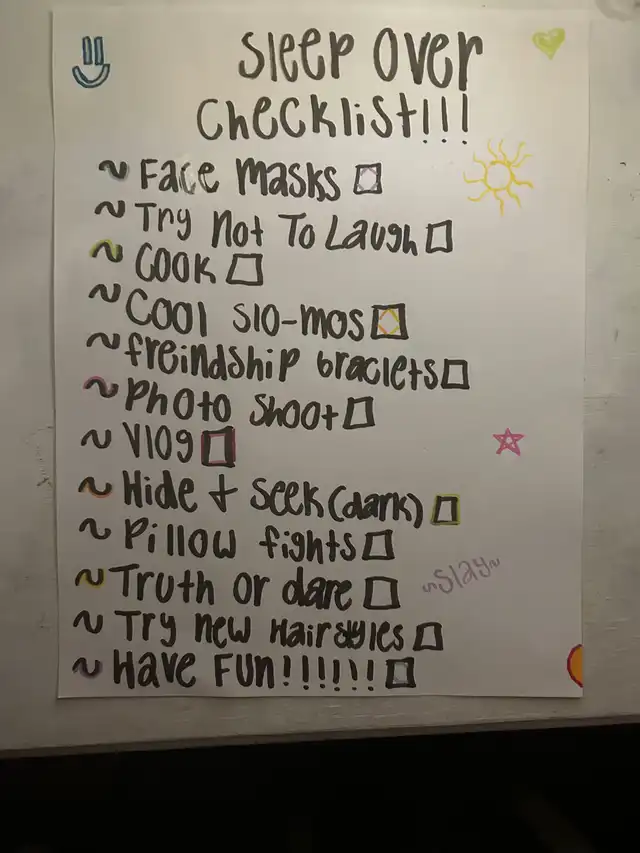 Sleep Over
Checklist!!!
~ Face masks
~ Try Not To Laugh
~ Cook
~ Cool slo-mos
~ freindship braclets
~ Photo shoot
~ Vlog
~ Hide + seek (dark)
~ Pillow fights
~ Truth or dare
~slay~
~ Try new Hairstyles
~ Have Fun!!!!!!